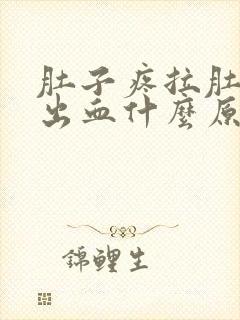 肚子疼拉肚
出血什麼原
錦鯉生